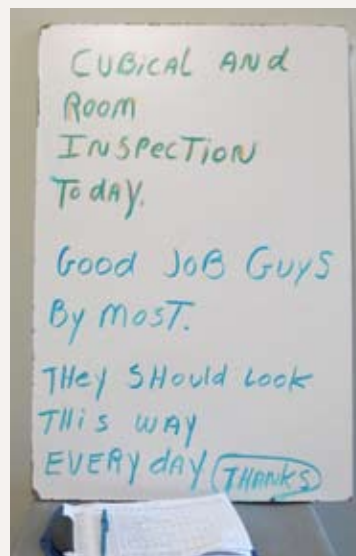 CUBICAL AND
ROOM
INSPECTION
TodAY.
Good JOB GUYS
By MOST.
THEY SHOULD LOOK
THIS WAY
EVERY dAY THANKS